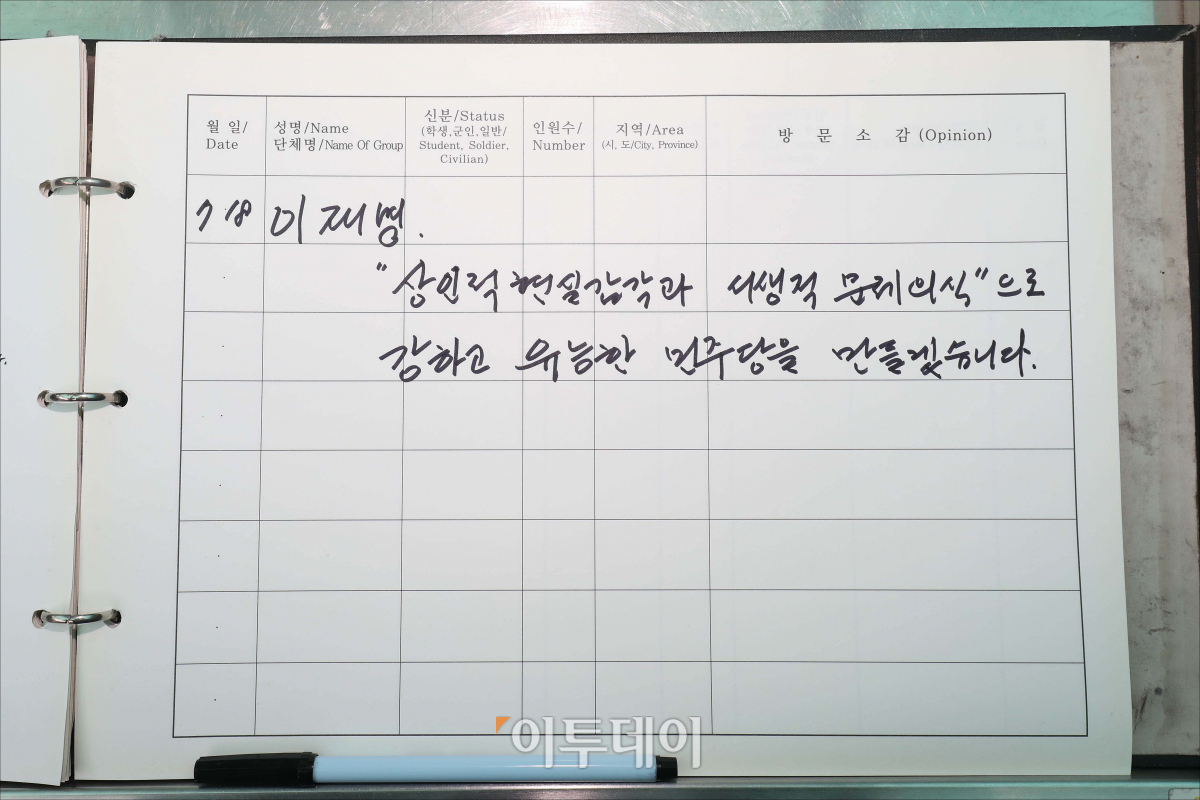 월 일/
Date
성명/Name
단체명/Name Of Group
신분/Status
(학생,군인,일반/
Student, Soldier,
Civilian)
인원수/
Number
지역/Area
(시, 도/City, Province)
방 문 소 감 (Opinion)
7 18 이재명.
"상인적 현실감각과 서생적 문제의식"으로
강하고 유능한 민주당을 만들겠습니다.
이투데이